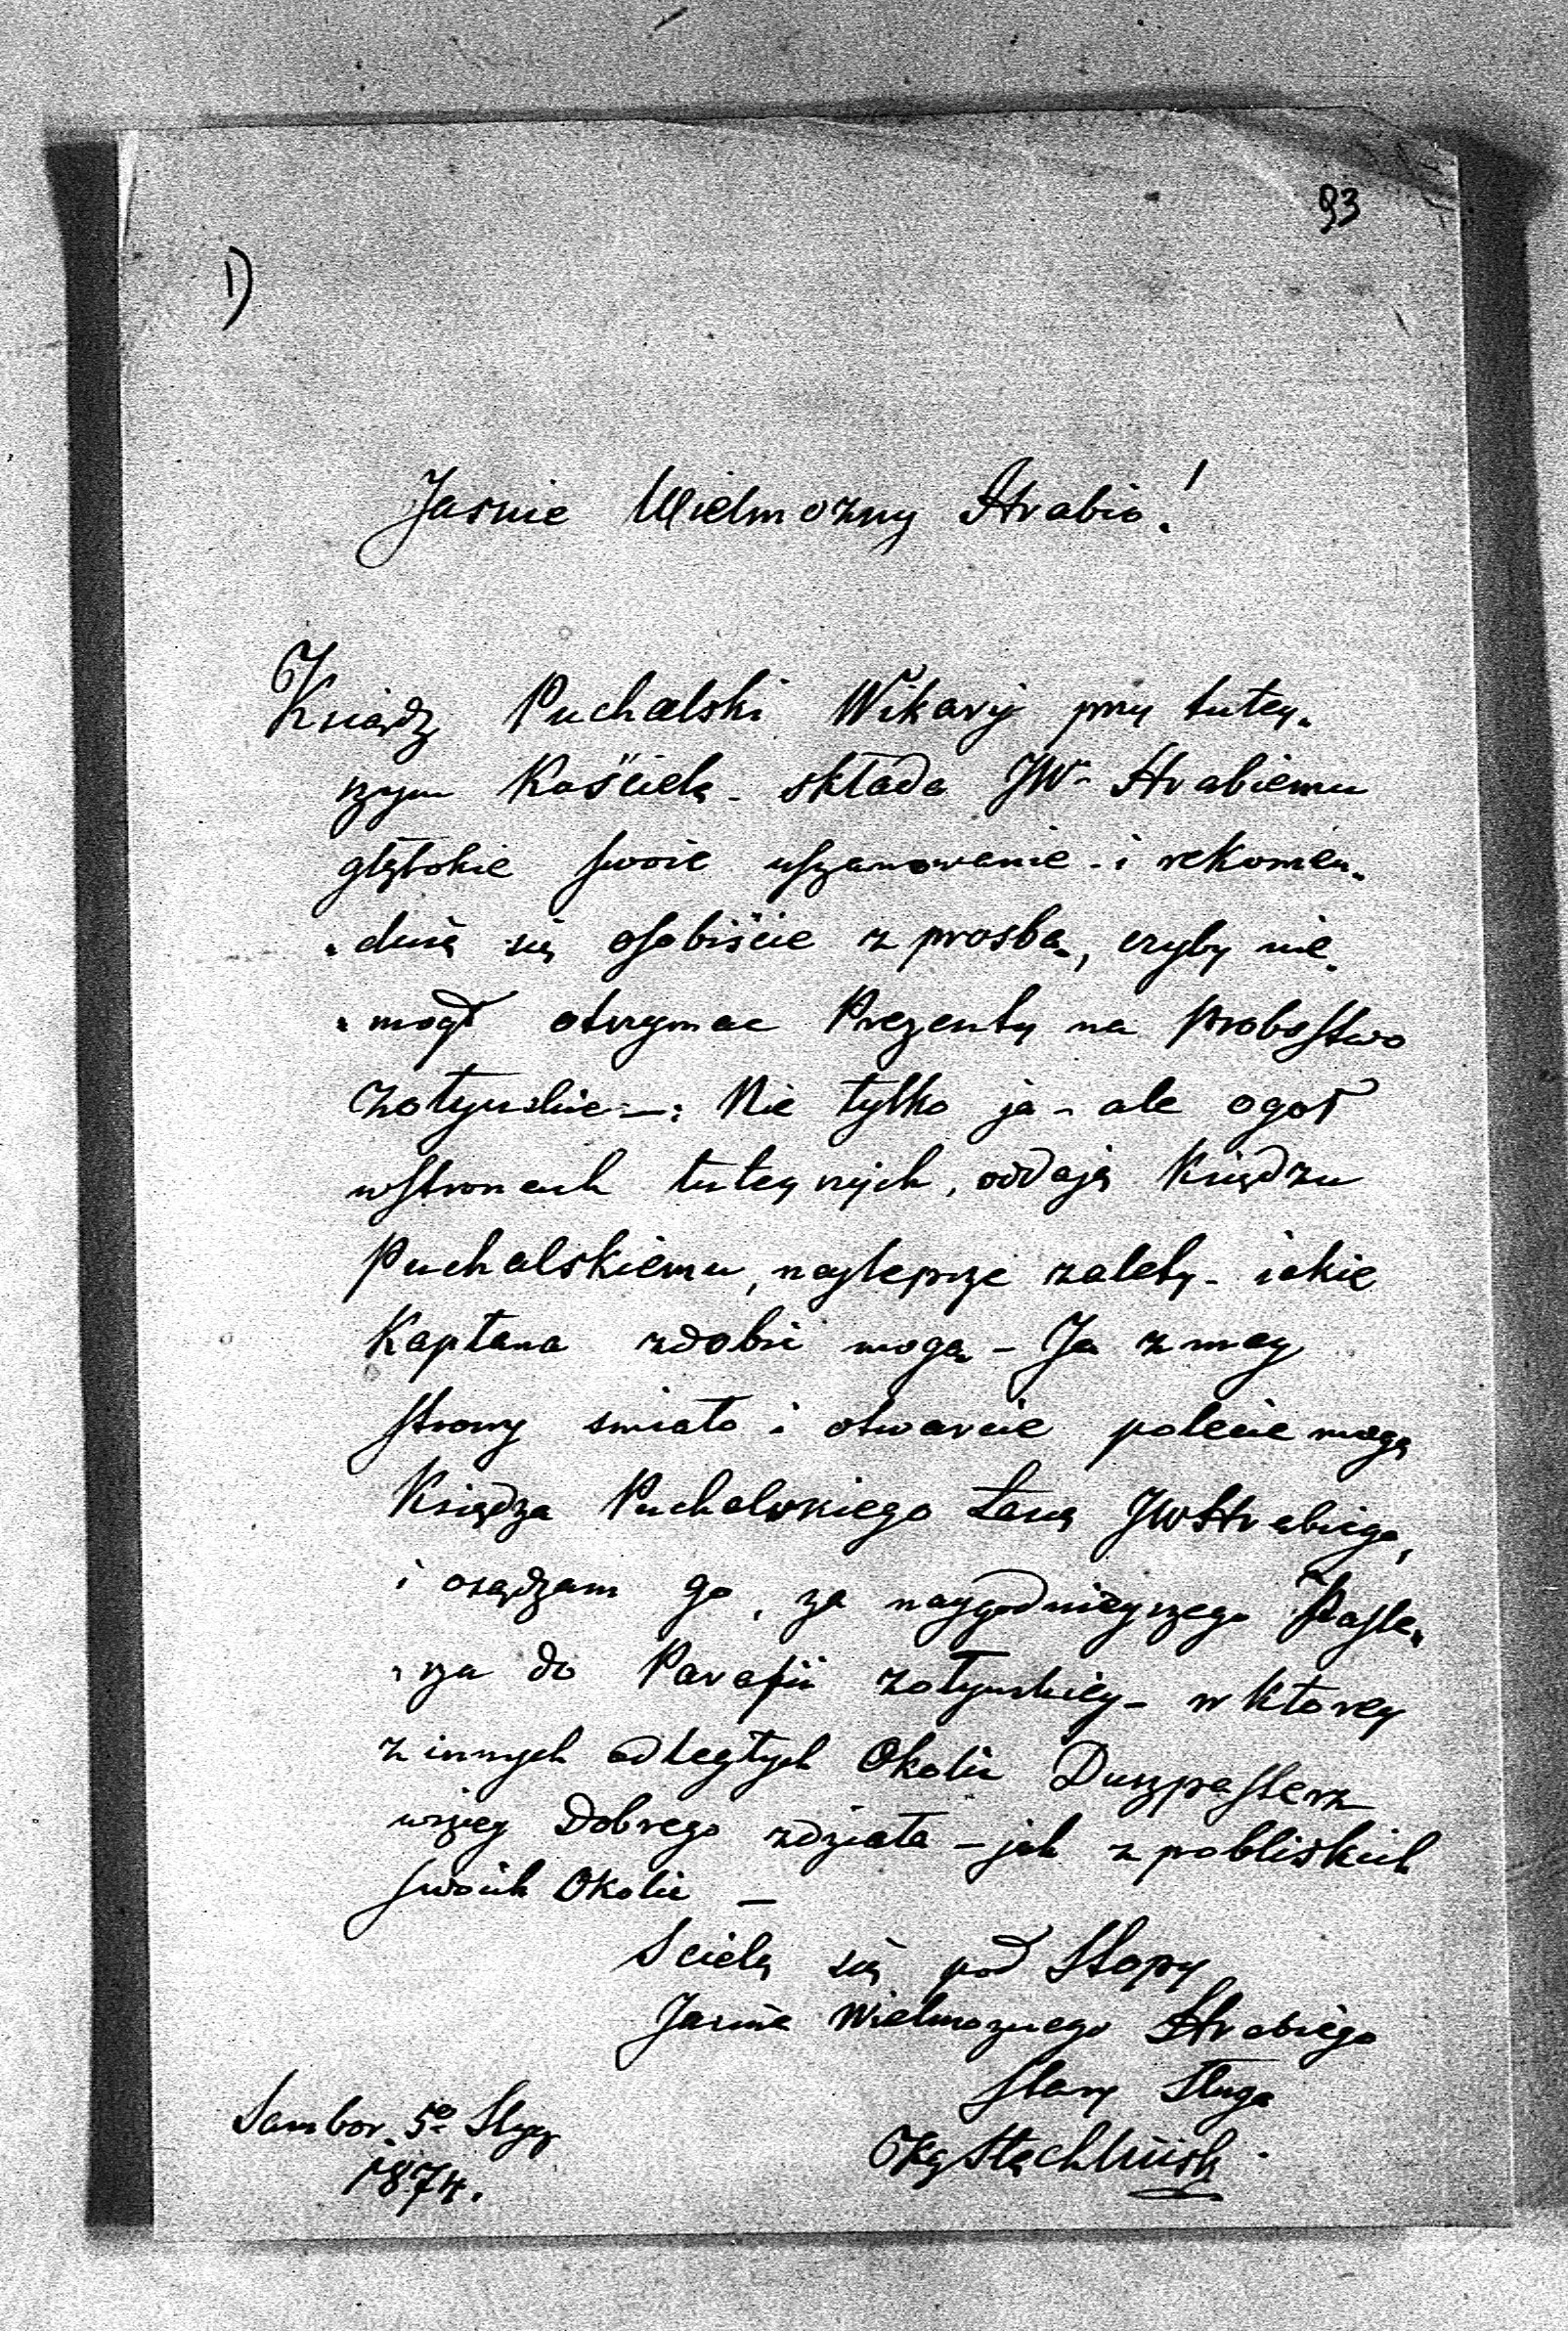 93
1)
Jasnie Wielmozny Hrabio!
Ksiądz Puchalski Wikary przy tutey-
szym Kościele - składa JW- Hrabiemu
głębokie swoie uszanowanie - i rekomen-
-duie się osobiście z prosbą, czyby nie-
-mogł otrzymac Prezenty na Probostwo
Żołynskie -: Nie tylko ja - ale ogoł
w stronach tuteyszych, oddają Księdzu
Puchalskiemu, najlepsze zalety - iakie
Kapłana zdobic mogą - Ja z mey
strony smiało i otwarcie polecic mogę
Księdza Puchalskiego Łasce JWHrabiego,
i osądzam go, za naygodnieyszego Paste-
-rza do Parafii żołynskiey - w ktorey
z innych odległych Okolic Duszpasterz
więcey Dobrego zdziała - jak z pobliskich
swoich Okolic -
Scielę się pod Stopy
Jasnie Wielmoznego Hrabiego
stary Sługa
Sambor. 5º Stycz
1874.